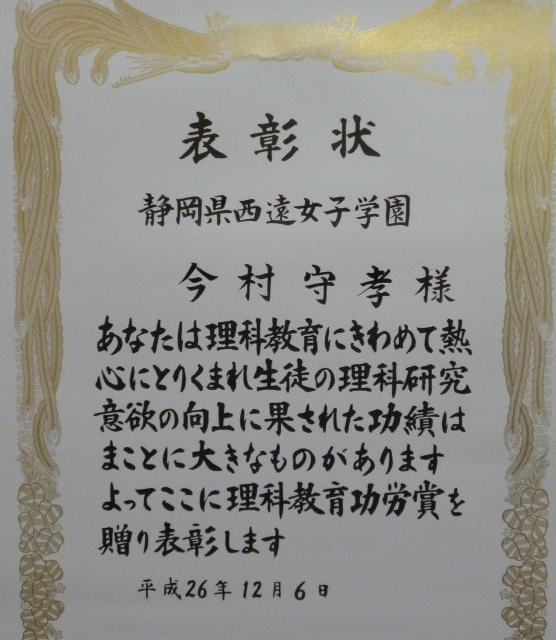 表彰状
静岡県西遠女子学園
今村守孝様
あなたは理科教育にきわめて熱
心にとりくまれ生徒の理科研究
意欲の向上に果された功績は
まことに大きなものがあります
よってここに理科教育功労賞を
贈り表彰します
平成26年12月6日